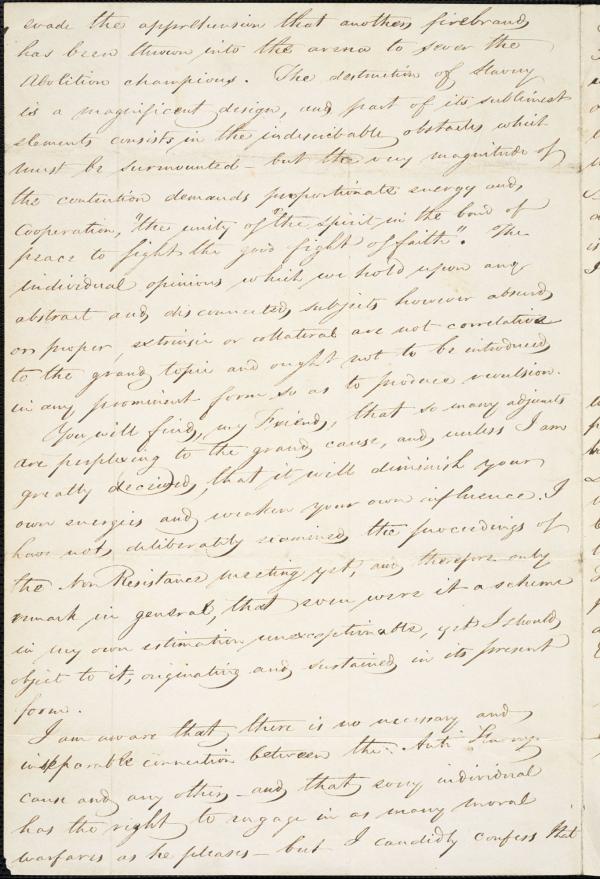 evade the apprehension that another firebrand
has been thrown into the arena to sever the
Abolition champions. The destruction of Slavery
is a magnificent design, and part of its sublimest
elements consists in the indescribable obstacles which
must be surmounted - but the very magnitude of
the contention demands proportionate energy and
Cooperation, "the unity of "the spirit in the bond of
peace to fight the good fight of faith". The
individual opinions which we hold upon any
abstract and disconnected subjects however absurd,
or proper, extrinsic or collateral are not correlative
to the grand topic and ought not to be introduced
in any prominent form so as to produce revulsion.
You will find, my Friend, that so many adjuncts
are perplexing to the grand cause, and unless I am
greatly deceived, that it will diminish your
own energies and weaken your own influence. I
have not deliberately examined the proceedings of
the Non Resistance meeting yet, and therefore only
remark in general, that even were it a scheme
in my own estimation unexceptionable, yet I should
object to it, originating and sustained in its present
form.
I am aware that there is no necessary and
inseparable connection between the Anti Slavery
cause and any other - and that every individual
has the right to engage in as many moral
warfares as he pleases - but I candidly confess that